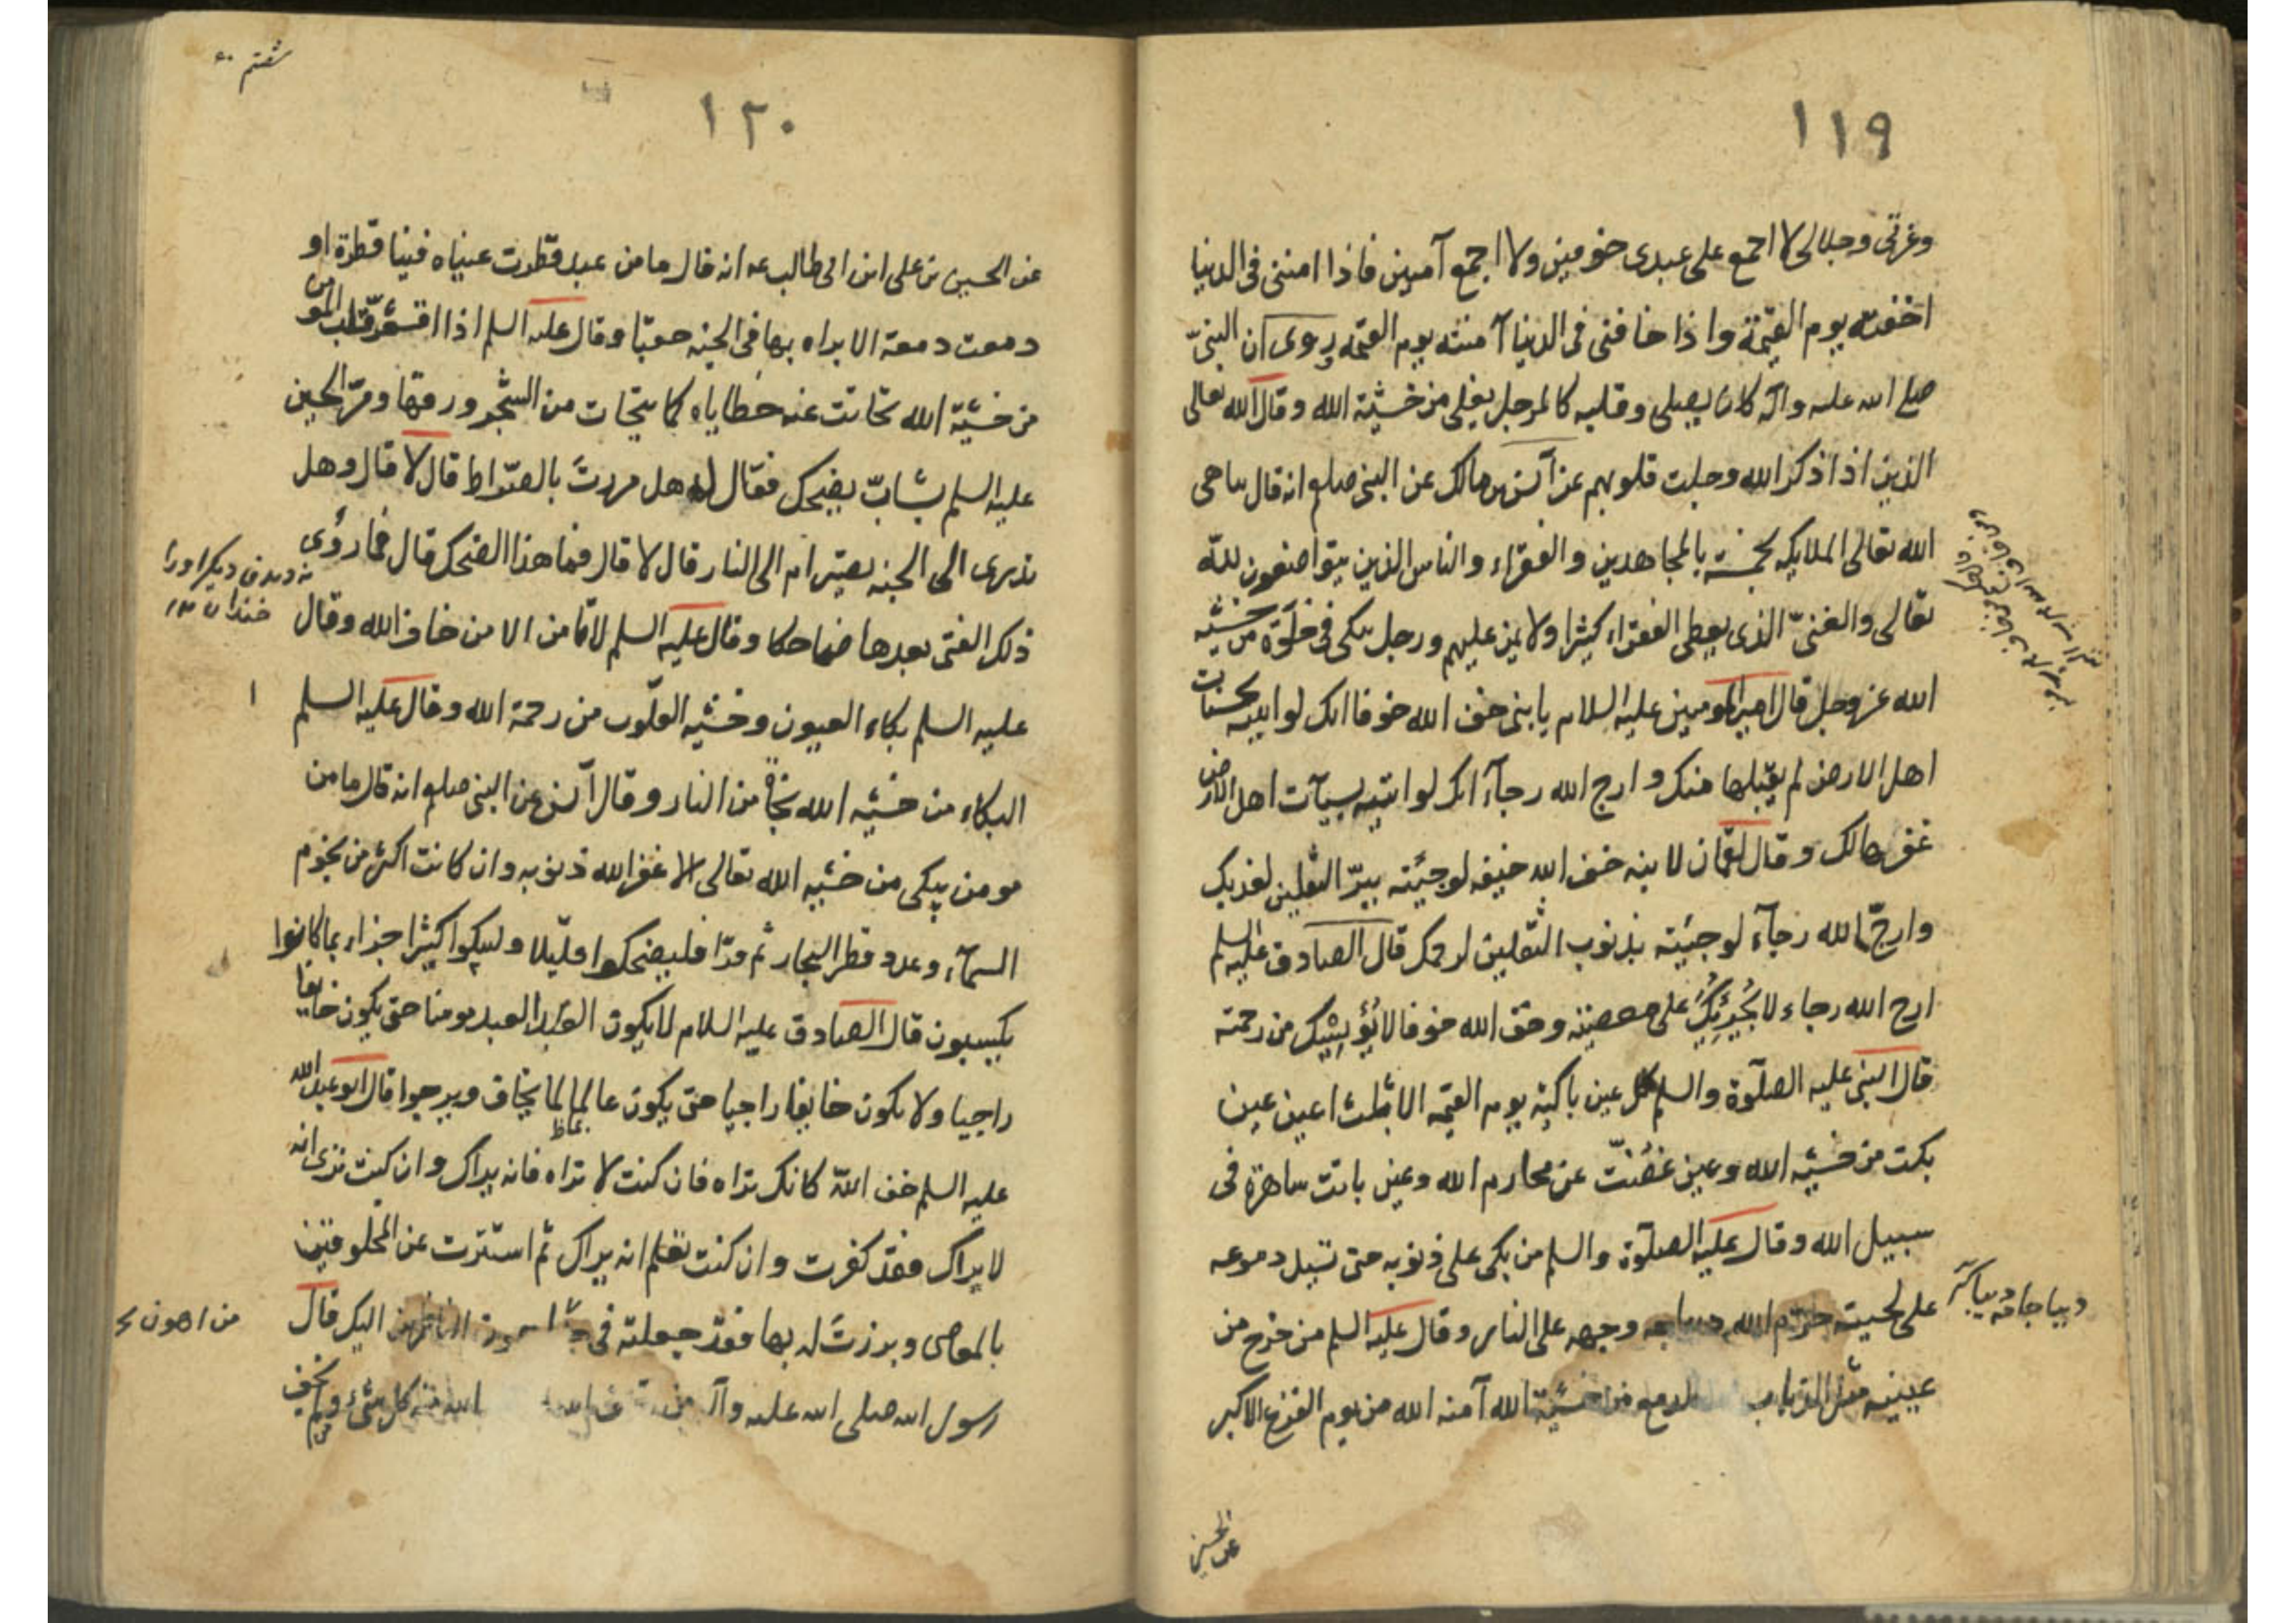 ١١٩
وعزتى وجلالى لا اجمع على عبدى خوفين ولا اجمع آمنين فاذا امننى فى الدنيا
اخفته يوم القيمة واذا خافنى فى الدنيا آمنته يوم القيمه يروى ان النبىّ
صلى الله عليه وآله كان يصلى وقلبه كالمرجل يغلى من خشية الله وقال الله تعالى
الذين اذا ذكر الله وجلت قلوبهم عن آنس بن مالك عن النبى صلعم انه قال يباهى
الله تعالى الملايكه بخمسة بالمجاهدين والفقراء والناس الذين يتواضعون لله
تعالى والغنىّ الذى يعطى الفقراء كثيرا ولا يمن عليهم ورجل يبكى فى خلوة من خشيه
الله عز وجل قال امير المومنين عليه السلام يا بنى خف الله خوفا انك لو اتيته بحسنات
اهل الارض لم يقبلها منك وارج الله رجآء انك لو اتيته بسيآت اهل الارض
غفرها لك وقال لقمان لابنه خف الله خيفه لو جيئته ببرّ الثقلين لعذبك
وارجّ الله رجآء لو جيئته بذنوب الثقلين لرحمك قال الصادق عليه السلم
ارج الله رجاء لا يُجرِئُك على معصيته وخف الله خوفا لا يُؤيسك من رحمته
قال النبى عليه الصلوة والسلم كل عين باكية يوم القيمه الا ثلث اعين عين
بكت من خشيه الله وعين غضّت عن محارم الله وعين باتت ساهرة فى
سبيل الله وقال عليه الصلوة والسلم من بكى على ذنوبه حتى تسيل دموعه
على لحيته حرّم الله ديباجه وجهه على النار وقال عليه السلم من خرج من
عينيه مثل الذباب الدمع من خشية الله آمنه الله من يوم الفزع الاكبر
ديبا جامه
عن الحسين
١٢٠
عن الحسين بن على ابن ابى طالب عه انه قال ما من عبد قطرت عيناه فينا قطرة او
دمعت دمعة الا براه بها فى الجنه حقبا وقال عليه السلم اذا اقشعرّ قلب المومن
من خشية الله تحاتت عنه خطاياه كما يتحات من الشجر ورقها ومرّ الحسين
عليه السلم بشابّ يضحك فقال له هل مررت بالصّراط قال لا قال وهل
تدرى الى الجنه تصير ام الى النار قال لا قال فما هذا الضحك قال فما رؤى
ذلك الفتى بعدها ضاحكا وقال عليه السلم لا يامن الا من خاف الله وقال
عليه السلم بكاء العيون وخشيه القلوب من رحمة الله وقال عليه السلم
البكاء من خشيه الله نجاة من النار وقال آنس عن النبى صلعم انه قال ما من
مومن يبكى من خشيه الله تعالى الا غفر الله ذنوبه وان كانت اكثر من نجوم
السمآء وعدد قطر البحار ثم قرا فليضحكوا قليلا وليبكوا كثيرا جزاء بما كانوا
يكسبون قال الصادق عليه السلام لا يكون العبد مومنا حتى يكون خايفا
راجيا ولا يكون خايفا راجيا حتى يكون عالما لما يخاف ويرجوا قال ابو عبد الله
عليه السلم خف الله كانك تراه فان كنت لا تراه فانه يراك وان كنت ترى انه
لا يراك فقد كفرت وان كنت تعلم انه يراك ثم استترت عن المخلوقين
بالمعاصى وبرزت له بها فقد جعلته فى الناظرين اليك قال
رسول الله صلى الله عليه وآله من الله منه كل شىء ومن لم يخف
خندان
من اهون